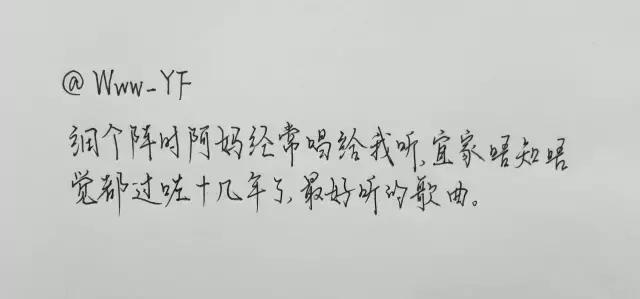 @Www_YF
细个阵时阿妈经常唱给我听,宜家唔知唔
觉都过咗十几年了,最好听的歌曲。